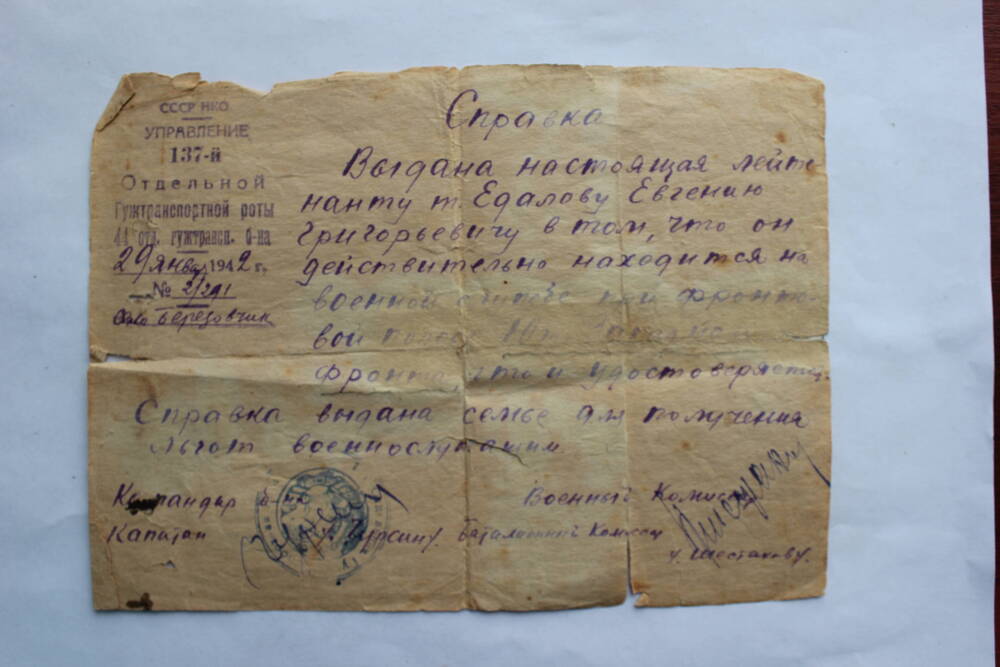 СССР НКО
УПРАВЛЕНИЕ
137-й
Отдельной
Гужтранспортной роты
44 отд. гужтрансп. б-на
29 январ 1942 г.
№ 2/291
Березовчик
Справка
Выдана настоящая лейте
нанту т. Едалову Евгению
Григорьевичу в том, что он
действительно находится на
военной службе при фронто-
вой полосе Юго Западном
фронта, что и удостоверяется.
Справка выдана семье для получения
льгот военнослужащим
Командир
Капитан
Военный Комисар
Баталионный Комисар
/Шестаков/.